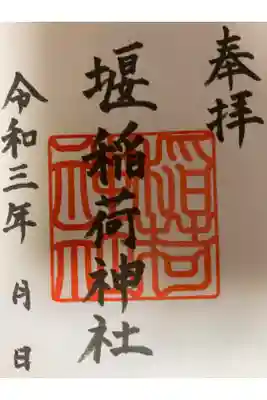 奉拝
堰稲荷神社
令和三年 月 日